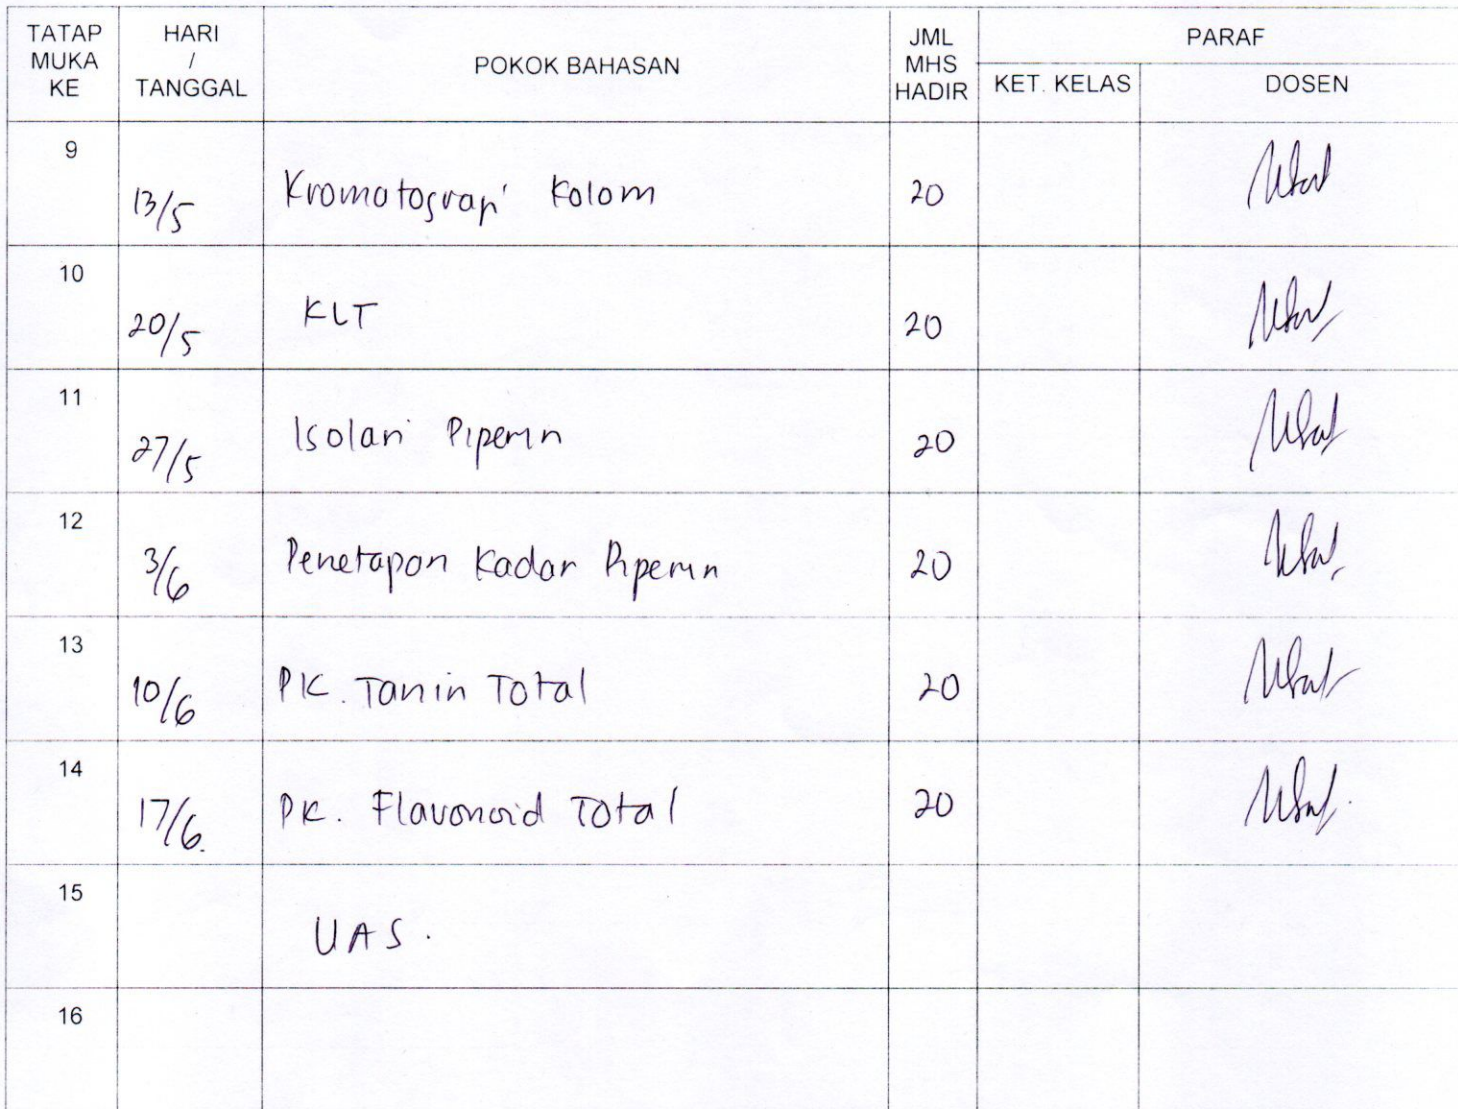 TATAP MUKA KE HARI / TANGGAL POKOK BAHASAN JML MHS HADIR PARAF
KET. KELAS DOSEN
9 13/5 Kromatografi Kolom 20
10 20/5 KLT 20
11 27/5 Isolasi Piperin 20
12 3/6 Penetapan Kadar Piperin 20
13 10/6 PK. Tanin Total 20
14 17/6. PK. Flavonoid Total 20
15 UAS.
16